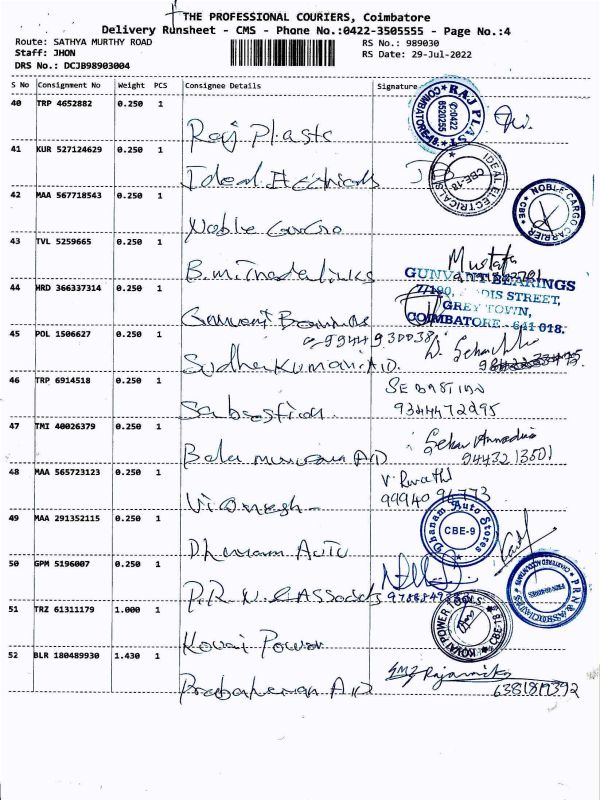 THE PROFESSIONAL COURIERS, Coimbatore
Delivery Runsheet - CMS - Phone No.:0422-3505555 - Page No.:4
Route: SATHYA MURTHY ROAD RS No.: 989030
Staff: JHON RS Date: 29-Jul-2022
DRS No.: DCJB98903004
S No Consignment No Weight PCS Consignee Details Signature
40 TRP 4652882 0.250 1
Raj Plasts
RAJ PLAST COIMBATORE
41 KUR 527124629 0.250 1
Ideal Electricals
IDEAL ELECTRICALS CBE-18
42 MAA 567718543 0.250 1
Noble Cargo
NOBLE CARGO CARRIER CBE
43 TVL 5259665 0.250 1
Mustafa
44 HRD 366337314 0.250 1
GUNVANT BEARINGS
STREET,
GREY TOWN,
COIMBATORE - 641 018.
45 POL 1506627 0.250 1
9944930038
Sudha Kumari A.D.
46 TRP 6914518 0.250 1
SEBASTIAN
9344472295
Sabastian
47 TMI 40026379 0.250 1
9443213501
Bala A.D
48 MAA 565723123 0.250 1
V. Revathi
Vignesh
49 MAA 291352115 0.250 1
Dhanam Auto
Dhanam Auto Stores CBE-9
50 GPM 5196007 0.250 1
P.R.N & Associates
PRN & ASSOCIATES CHARTERED ACCOUNTANTS
51 TRZ 61311179 1.000 1
Kovai Power
KOVAI POWER TOOLS CBE-18
52 BLR 180489930 1.430 1
Prabakaran A.D
6381819392